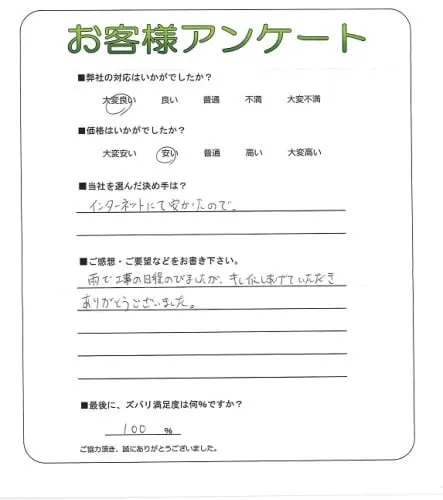 お客様アンケート
■弊社の対応はいかがでしたか?
大変良い 良い 普通 不満 大変不満
■価格はいかがでしたか?
大変安い 安い 普通 高い 大変高い
■当社を選んだ決め手は?
インターネットにて安かたので。
■ご感想・ご要望などをお書き下さい。
雨で工事の日程のびましたが、キレイにしあげていただき
ありがとうございました。
■最後に、ズバリ満足度は何%ですか?
100 %
ご協力頂き、誠にありがとうございました。